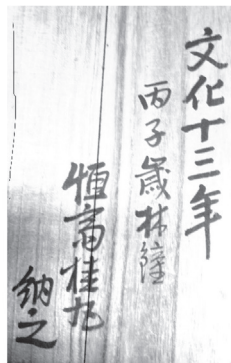 文化十三年
丙子歳林鐘
恒斎桂丸
納之